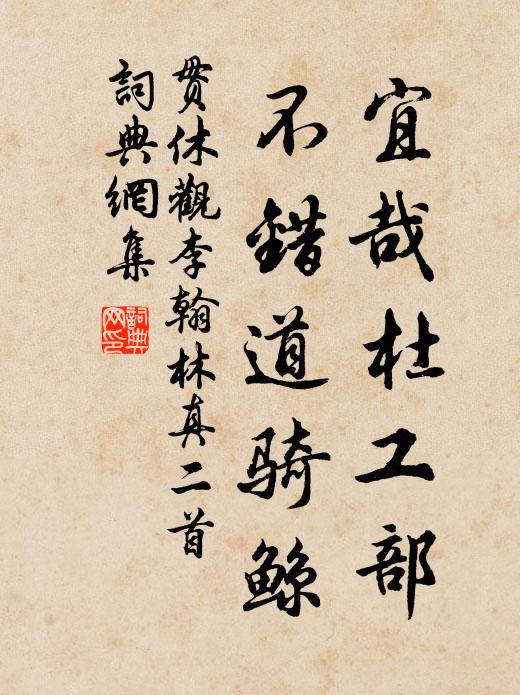 宜哉杜工部
不错道骑鲸
贯休觀李翰林真二首
詞典網集
詞典网印